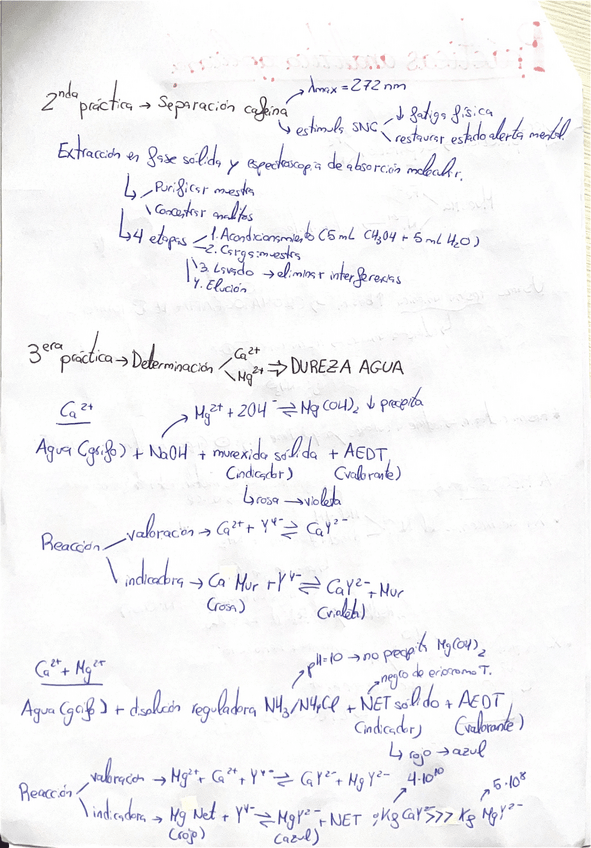 2nda práctica → Separación cafeína → λmax = 272 nm
→ estimula SNC ↓ fatiga física
restaurar estado alerta mental
Extracción en fase sólida y espectroscopia de absorción molecular.
↳ Purificar muestra
Concentrar analitos
↳ 4 etapas 1. Acondicionamiento (5 mL CH3OH + 5 mL H2O)
2. Carga muestra
3. Lavado → eliminar interferencias
4. Elución
3era práctica → Determinación Ca2+ Mg2+ ⇒ DUREZA AGUA
Ca2+
Mg2+ + 2OH- ⇌ Mg(OH)2 ↓ precipita
Agua (grifo) + NaOH + murexida sólida + AEDT
(indicador) (valorante)
↳ rosa → violeta
Reacción valoración → Ca2+ + Y4- ⇌ CaY2-
indicadora → Ca Mur + Y4- ⇌ CaY2- + Mur
(rosa) (violeta)
Ca2+ + Mg2+
pH=10 → no precipita Mg(OH)2
negro de eriocromo T.
Agua (grifo) + disolución reguladora NH3/NH4Cl + NET sólido + AEDT
(indicador) (valorante)
↳ rojo → azul
Reacción valoración → Mg2+ + Ca2+ + Y4- ⇌ CaY2- + MgY2-
4·10^10 5·10^8
indicadora → Mg Net + Y4- ⇌ MgY2- + NET ; Kg CaY2- >>> Kg MgY2-
(rojo) (azul)